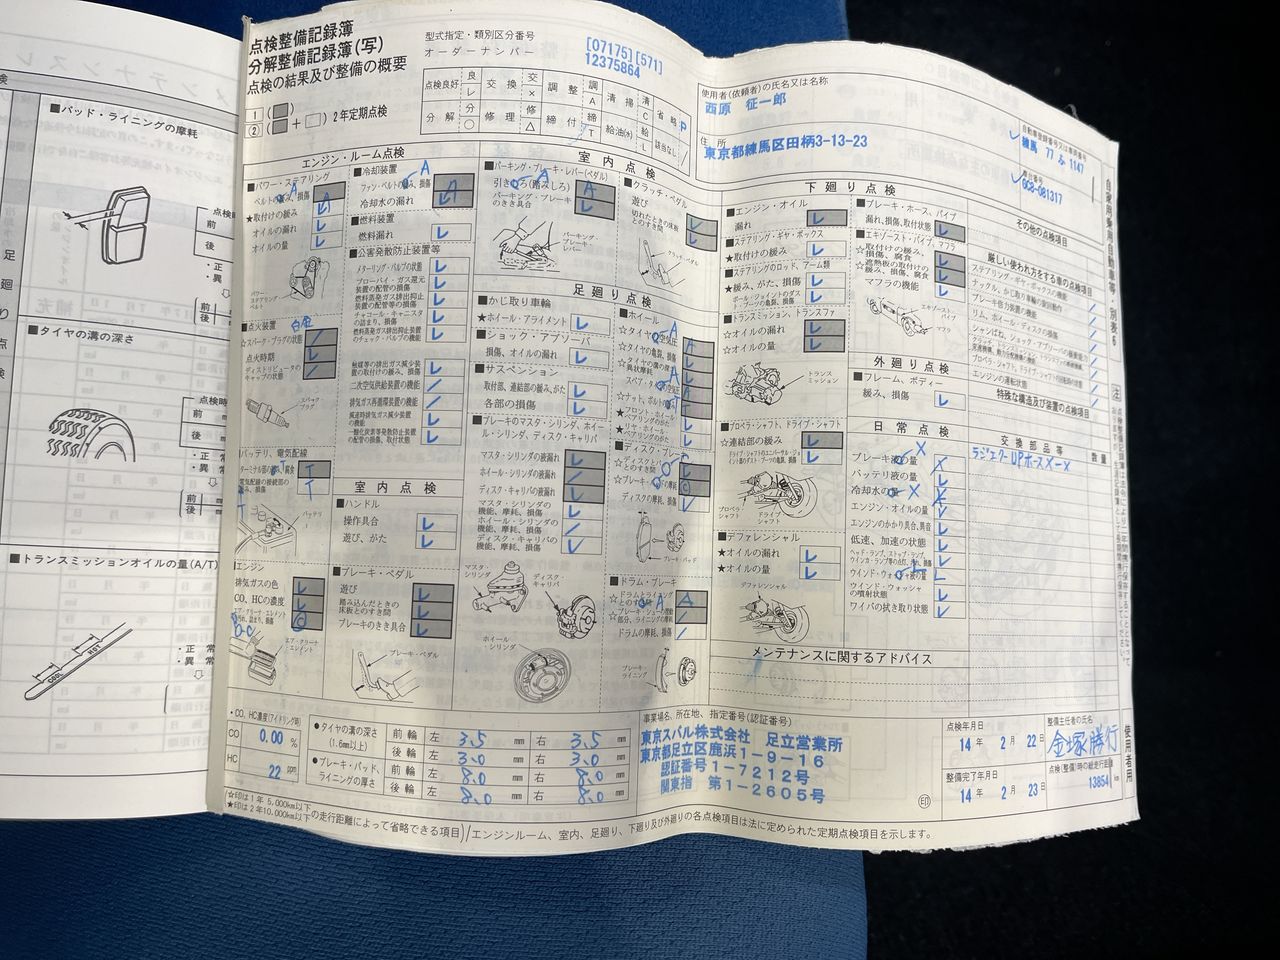 点検整備記録簿
分解整備記録簿(写)
点検の結果及び整備の概要
2年定期点検
型式指定・類別区分番号
[07175][571]
オーダーナンバー
12375864
点検良好 レ 交換 × 調整 A 清掃 C 省略 P
分解 ○ 修理 △ 締付 T 給油(水) L 該当なし /
使用者(依頼者)の氏名又は名称
西原 征一郎
住所
東京都練馬区田柄3-13-23
自動車登録番号又は車両番号
練馬 77 ふ 1147
車台番号
GC8-081317
エンジン・ルーム点検
■パワー・ステアリング
ベルトの緩み、損傷
★取付けの緩み
オイルの漏れ
オイルの量
パワーステアリングベルト
■点火装置
☆スパーク・プラグの状態
点火時期
ディストリビュータのキャップの状態
スパークプラグ
■バッテリ、電気配線
ターミナル部の緩み、腐食
電気配線の接続部の緩み、損傷
バッテリ
■エンジン
排気ガスの色
CO、HCの濃度
エア・クリーナ・エレメント
■冷却装置
ファン・ベルトの緩み、損傷
冷却水の漏れ
■燃料装置
燃料漏れ
■公害発散防止装置等
メターリング・バルブの状態
ブローバイ・ガス還元装置の配管の損傷
燃料蒸発ガス排出抑止装置の配管等の損傷
チャコール・キャニスタの詰まり、損傷
燃料蒸発ガス排出抑止装置のチェック・バルブの機能
触媒等の排出ガス減少装置の取付けの緩み、損傷
二次空気供給装置の機能
排気ガス再循環装置の機能
減速時排気ガス減少装置の機能
一酸化炭素等発散防止装置の配管の損傷、取付状態
室内点検
■ハンドル
操作具合
遊び、がた
■ブレーキ・ペダル
遊び
踏み込んだときの床板とのすき間
ブレーキのきき具合
ブレーキ・ペダル
室内点検
■パーキング・ブレーキ・レバー(ペダル)
引きしろ(踏みしろ)
パーキング・ブレーキのきき具合
パーキング・ブレーキレバー
■クラッチ・ペダル
遊び
切れたときの床板とのすき間
クラッチ・ペダル
足廻り点検
■かじ取り車輪
★ホイール・アライメント
■ショック・アブソーバ
損傷、オイルの漏れ
■サスペンション
取付部、連結部の緩み、がた
各部の損傷
■ブレーキのマスタ・シリンダ、ホイール・シリンダ、ディスク・キャリパ
マスタ・シリンダの液漏れ
ホイール・シリンダの液漏れ
ディスク・キャリパの液漏れ
マスタ・シリンダの機能、摩耗、損傷
ホイール・シリンダの機能、摩耗、損傷
ディスク・キャリパの機能、摩耗、損傷
マスタ・シリンダ
ディスク・キャリパ
ホイール・シリンダ
■ホイール
☆タイヤの空気圧
☆タイヤの亀裂、損傷
☆タイヤの溝の深さ
★フロント・ホイール・ベアリングのがた
★リヤ・ホイール・ベアリングのがた
ディスクの摩耗、損傷
ブレーキ・パッド
■ドラム・ブレーキ
ドラムの摩耗、損傷
ブレーキ・ライニング
下廻り点検
■エンジン・オイル
漏れ
■ステアリング・ギヤ・ボックス
★取付けの緩み
■ステアリングのロッド、アーム類
★緩み、がた、損傷
ボール・ジョイントのダストブーツの亀裂、損傷
■トランスミッション、トランスファ
☆オイルの漏れ
☆オイルの量
トランスミッション
■プロペラ・シャフト、ドライブ・シャフト
☆連結部の緩み
プロペラ・シャフト
ドライブ・シャフト
■デファレンシャル
★オイルの漏れ
★オイルの量
デファレンシャル
■ブレーキ・ホース、パイプ
漏れ、損傷、取付状態
■エキゾースト・パイプ、マフラ
☆取付けの緩み、損傷、腐食
☆遮熱板の取付けの緩み、損傷、腐食
マフラの機能
エキゾースト・パイプ
マフラ
外廻り点検
■フレーム、ボディー
緩み、損傷
日常点検
ブレーキ液の量
バッテリ液の量
冷却水の量
エンジン・オイルの量
エンジンのかかり具合、異音
低速、加速の状態
ウインド・ウォッシャ液の量
ウインド・ウォッシャの噴射状態
ワイパの拭き取り状態
その他の点検項目
厳しい使われ方をする車の点検項目
ステアリング・ギヤ・ボックスの機能
ナックル、かじ取り車輪の旋回動作
ブレーキ倍力装置の機能
リム、ホイール・ディスクの損傷
エンジンの運転状態
特殊な構造及び装置の点検項目
交換部品等 数量
ラジェクターUPホース×-×
メンテナンスに関するアドバイス
・CO、HC濃度(アイドリング時)
CO 0.00 %
HC 22 ppm
●タイヤの溝の深さ(1.6mm以上)
前輪 左 3.5 mm 右 3.5 mm
後輪 左 3.0 mm 右 3.0 mm
●ブレーキ・パッド、ライニングの厚さ
前輪 左 8.0 mm 右 8.0 mm
後輪 左 8.0 mm 右 8.0 mm
事業場名、所在地、指定番号(認証番号)
東京スバル株式会社 足立営業所
東京都足立区鹿浜1-9-16
認証番号1-7212号
関東指 第1-2605号
点検年月日
14年 2月 22日
整備完了年月日
14年 2月 23日
整備主任者の氏名
金塚勝行
点検(整備)時の総走行距離
13854 km
使用者用
☆印は1年 5,000km以下
★印は2年10,000km以下の走行距離によって省略できる項目)/エンジンルーム、室内、足廻り、下廻り及び外廻りの各点検項目は法に定められた定期点検項目を示します。
■パッド・ライニングの摩耗
■タイヤの溝の深さ
■トランスミッションオイルの量(A/T)
HOT
COOL